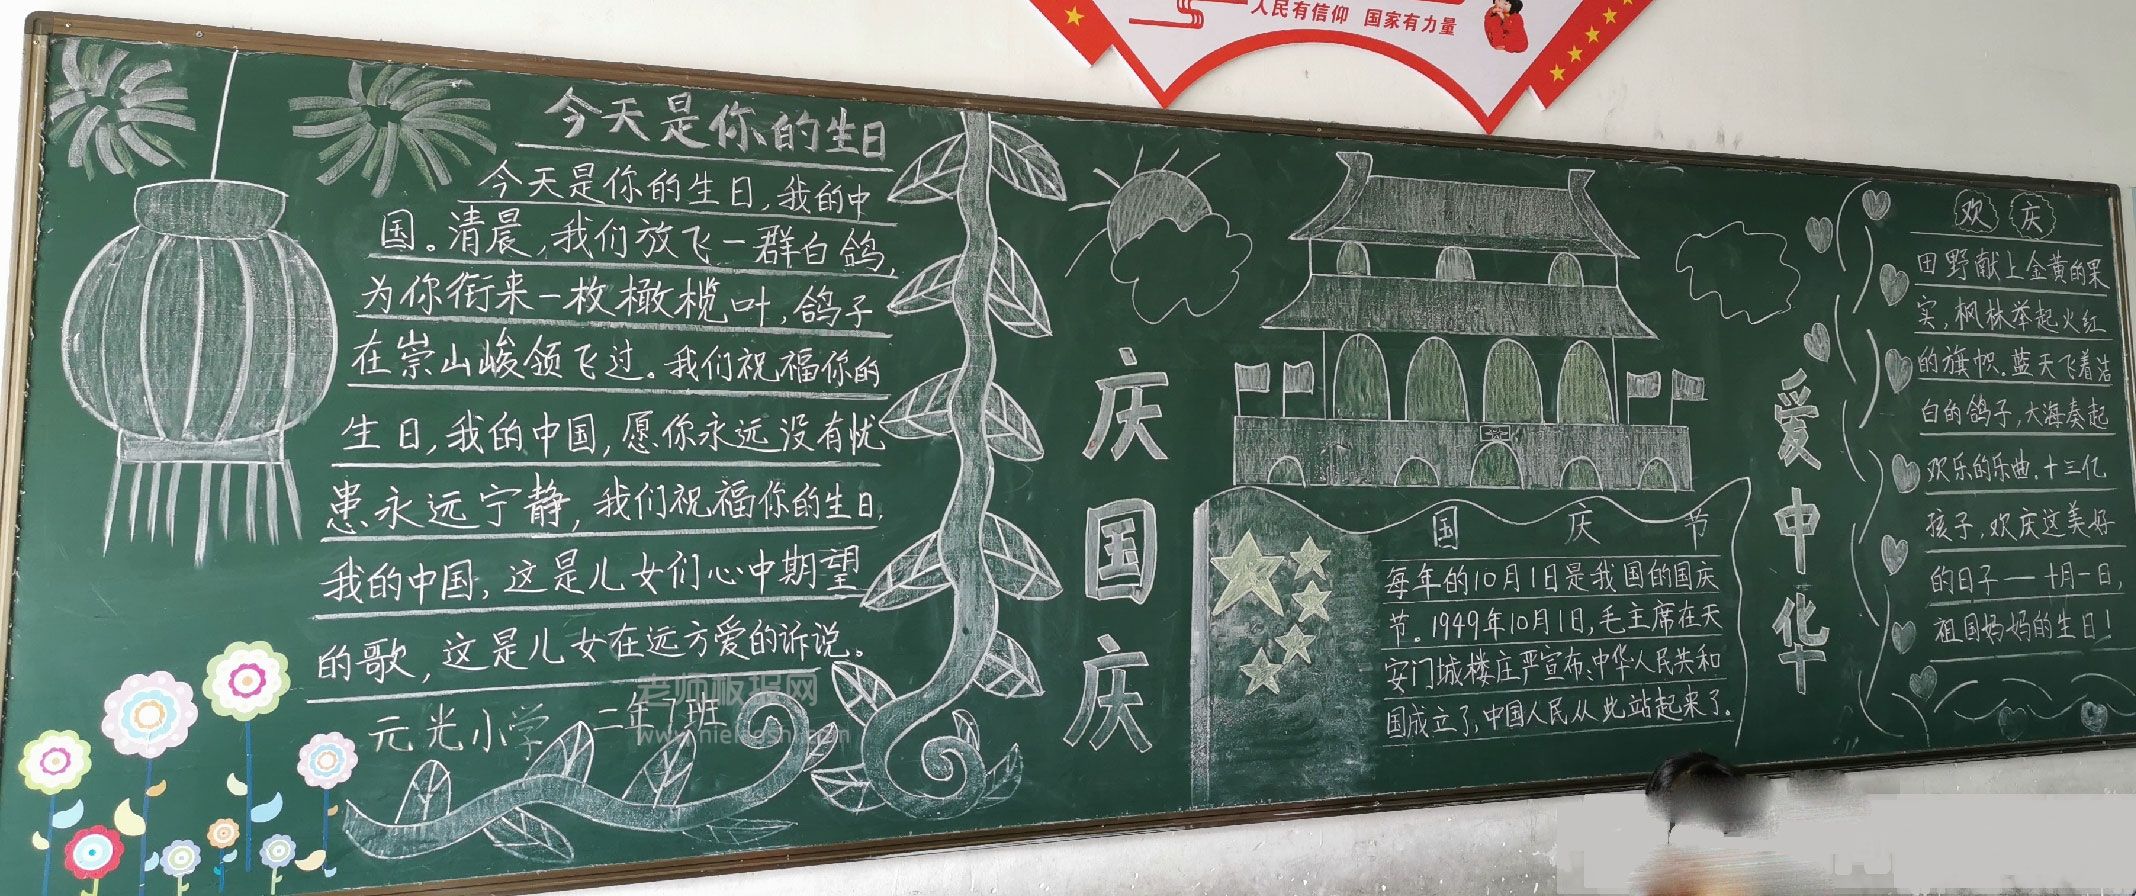 人民有信仰 国家有力量
今天是你的生日
今天是你的生日,我的中
国。清晨,我们放飞一群白鸽,
为你衔来一枚橄榄叶,鸽子
在崇山峻领飞过。我们祝福你的
生日,我的中国,愿你永远没有忧
患永远宁静,我们祝福你的生日,
我的中国,这是儿女们心中期望
的歌,这是儿女在远方爱的诉说。
元光小学 二年1班
老师板报网
庆国庆
国庆节
每年的10月1日是我国的国庆
节。1949年10月1日,毛主席在天
安门城楼庄严宣布:中华人民共和
国成立了,中国人民从此站起来了.
爱中华
欢庆
田野献上金黄的果
实,枫林举起火红
的旗帜.蓝天飞着洁
白的鸽子,大海奏起
欢乐的乐曲.十三亿
孩子,欢庆这美好
的日子——十月一日,
祖国妈妈的生日!